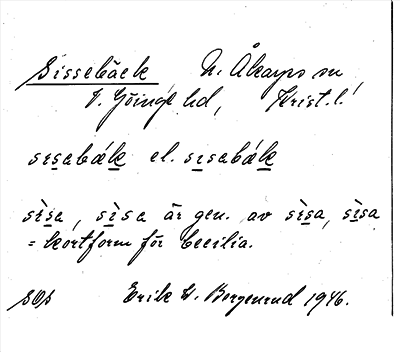 Sissebäck, N. Åkarps sn,
V. Göinge hd, Krist. l.
sɪsabǽk el. sɪsabǽk
sɪ̀sa, sɪ̀sa är gen. av sɪ̀sa, sɪ̀sa
= kortform för Cecilia.
Erik W. Bergenrud 1946.